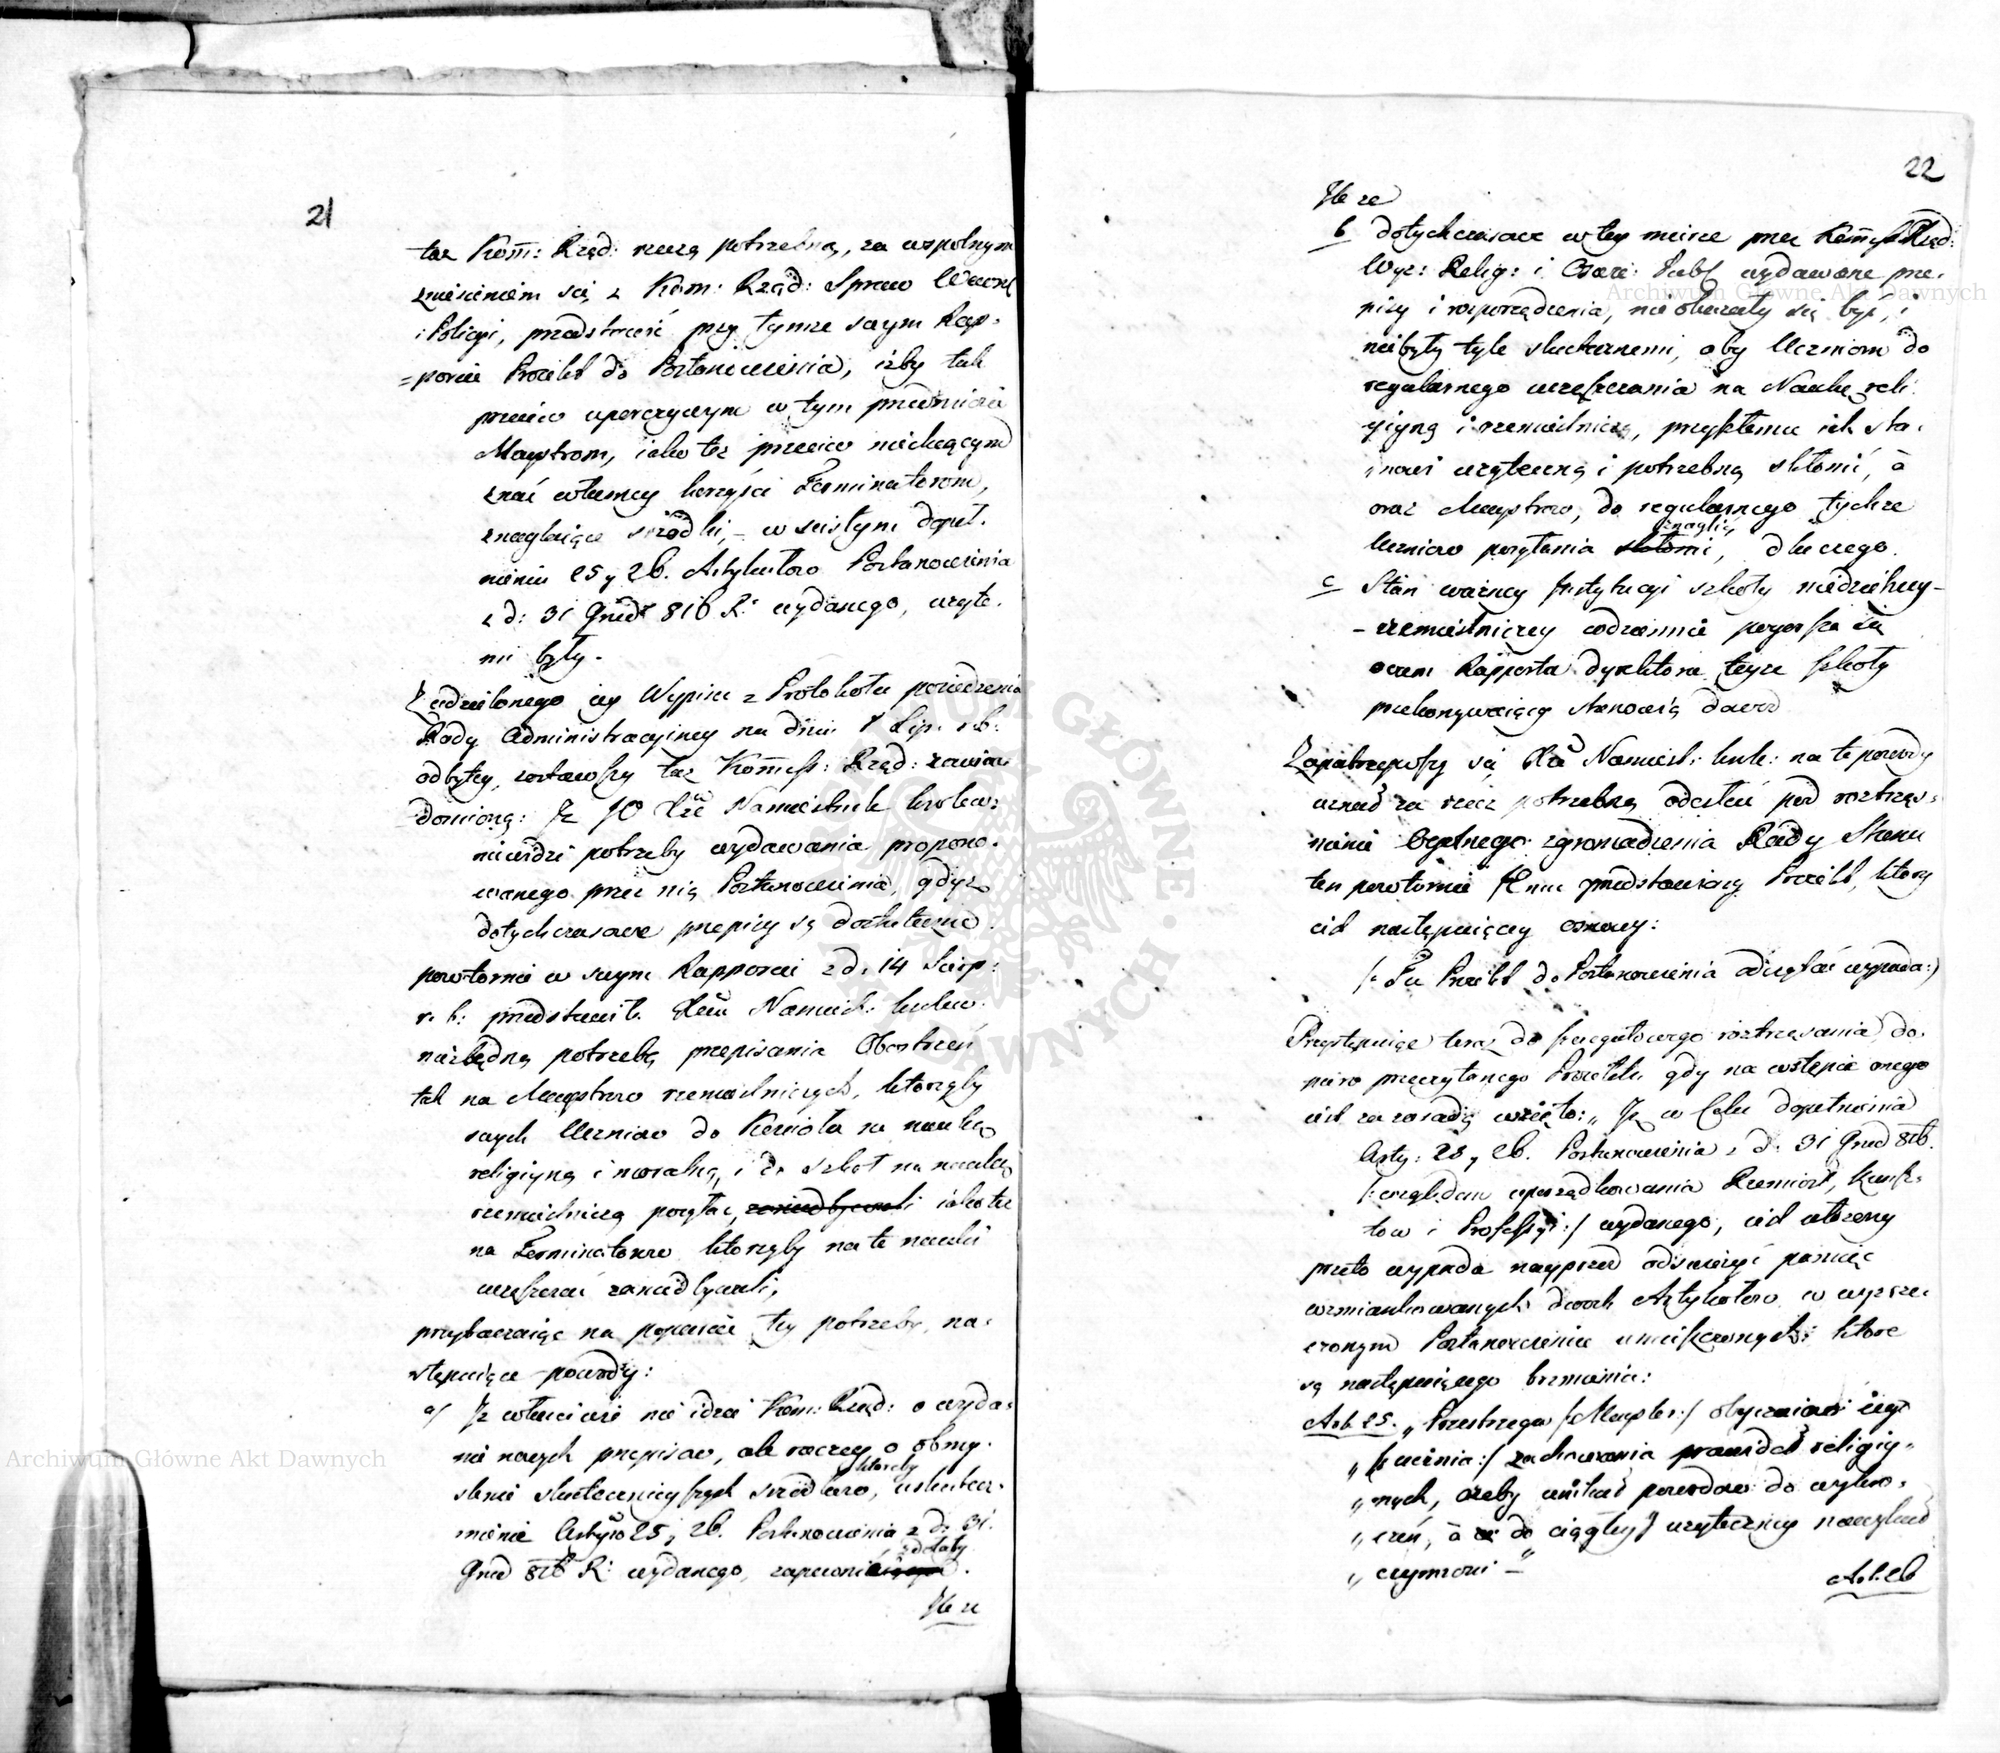 21
taż Kom̄: Rząd: rzeczą potrzebną, za wspolnym
zniesieniem się z Kom: Rząd: Spraw Wewn:
i Policyi, przedstawić przy tymże swym Rap-
=porcie Proiekt do Postanowienia, iżby tak
przeciw uporczywym w tym przedmiocie
Maystrom, iako też przeciw niechcącym
znać własney korzyści Terminatorom,
znaglaiące srzodki, - w scisłym dopeł-
nieniu 25 y 26. Artykułow Postanowienia
z d: 31 Grud 816 R: wydanego, użyte-
mi były.
Z udzielonego iey Wypisu z Protokołu posiedzenia
Rady Administracyiney na dniu 1 Lip. r.b:
odbytey, zostawszy taż Kommiss: Rząd: zawia-
domioną: Iż JO Xże Namiestnik Krolew:
niewidzi potrzeby wydawania propono-
wanego przez nią Postanowienia, gdyż
dotychczasowe przepisy są dostateczne.
powtornie w swym Rapporcie z d. 14 Sierp:
r. b: przedstawiła Xciu Namiest: Krolew:
niezbędną potrzebę przepisania Obostrzeń
tak na Maystrow rzemieslniczych, ktorzyby
swych Uczniow do Kościoła na naukę
religiyną i moralną, i do szkoł na naukę
rzemieslniczą posyłać, zaniedbywali iako też
na Terminatorow ktorzyby na te nauki
uczęszczać zaniedbywali,
przytaczaiąc na poparcie tey potrzeby, na-
stępuiące powody:
a/ Iż własciwie nie idzie Kom: Rząd: o wyda-
nie nowych przepisow, ale raczey o obmy-
ślenie skutecznieyszych srzodkow, uskutecz-
ktoreby
nienie Artyłow 25 y 26. Postanowienia z d: 31.
zdołały
Grud 816 R: wydanego, zapewnić
Ile że
22
Ile że
b dotychczasowe w tey mierze przez Kommiss Rząd:
Wyz: Relig: i Oświe: Publ wydawane prze-
pisy i rozporządzenia, nie okazały się być, i
niebyły tyle skutecznemi, aby Uczniow do
regularnego uczęszczania na Naukę reli-
giyną i rzemieslniczą, przykłemu ich sta-
nowi użyteczną i potrzebną skłonić, à
oraz Maystrow, do regularnego tychże
znaglić
Uczniow posyłania skłonić, dla czego.
c Stan ważney Instytucyi szkoły niedzielney-
- rzemieslniczey codziennie pogorsza się
czem Rapporta Dyrektora teyże szkoły
przekonywaiący stanowią dowod
Zapatrzywszy się Xżę Namiest: Krole: na te powody
uznał za rzecz potrzebną odesłać pod roztrząs-
nienie Ogolnego zgromadzenia Rady Stanu
ten powtornie Jemu przedstawiony Proiekt, ktory
iest następuiącey osnowy:
/: Tu Proiekt do Postanowienia odczytać wypada:/
Przystępuiąc teraz do szczegołowego roztrząsania do-
piero przeczytanego Proiektu, gdy na wstępie onego
iest za zasadę wzięto: „Iż w Celu dopełnienia
Arty: 25 y 26. Postanowienia z d: 31 Grud 816.
/: względem uporządkowania Rzemiosł, Kunsz-
tow i Professyi:/ wydanego, iest ułożony
przeto wypada nayprzod odświeżyć pamięć
wzmiankowanych dwoch Artykułow w wyrze-
czonym Postanowieniu umieszczonych: ktore
są następuiącego brzmienia:
Art. 25. „Przestrzega /:Mayster:/ obyczaiow iego
„/:ucznia:/ zachowania prawideł religiy-
„nych, żeby unikał powodow do wykro-
„czeń, à do ciągłey y użyteczney nawykał
„czynności - „
Art. 26